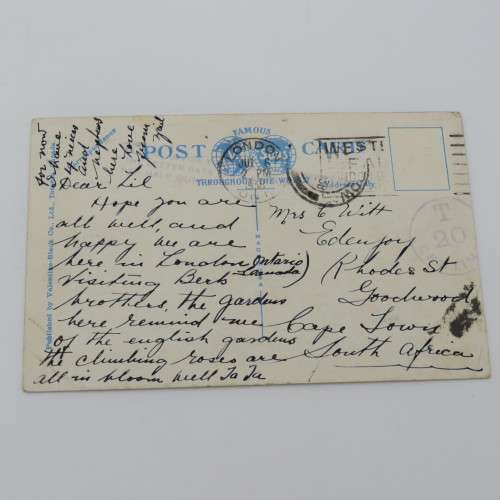 FAMOUS
POST CARD
THROUGHOUT THE WORLD
Published by Valentine-Black Co., Ltd., Toronto
LONDON
PM
WEST
T
20
Dear Lil
Hope you are
all well, and
happy We are
here in London (Ontario
Canada)
Visiting Berts
brothers, the gardens
here remind me
of the english gardens
the climbing roses are
all in bloom well Ta Ta
for now
I have
4 nieces
and
nephews
here Love
from
Mrs C Witt
Edenjoy
Rhodes St
Goodwood
Cape Town
South Africa